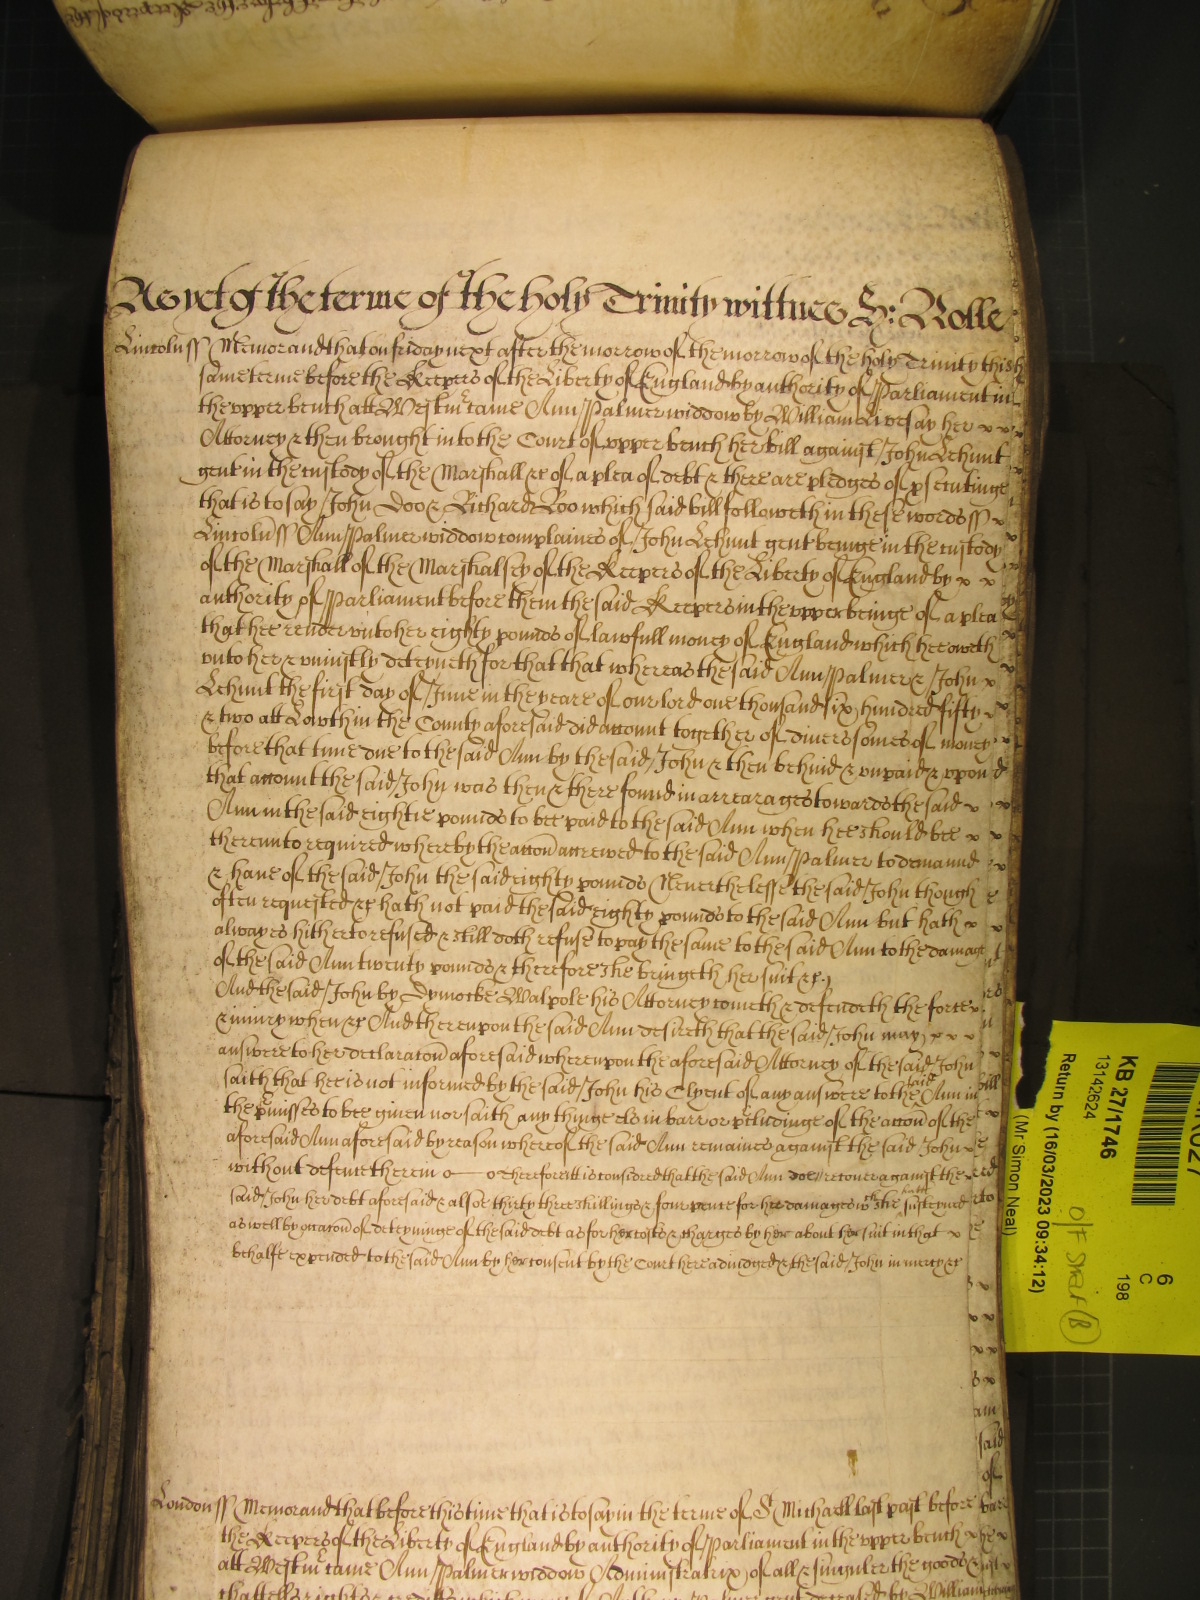 As yet of the terme of the holy Trinity wittnes H: Rolle
Lincoln ss Memorand that on friday next after the morrow of the morrow of the holy Trinity this
same terme before the Keepers of the Liberty of England by authority of Parliament in
the vpper bench att Westmr came Ann Palmer widdow by William Livesay her x x
Attorney & then brought into the Court of vpper bench her bill against John Lehunt
gent in the custody of the Marshall &c of a plea of debt & there are pledges of psecutinge
that is to say John Doo & Richard Roo which said bill followeth in these words ss x
Lincoln ss Ann Palmer widdow complaines of John Lehunt gent beinge in the custody
of the Marshall of the Marshalsey of the Keepers of the Liberty of England by x x
authority of Parliament before them the said Keepers in the vpper beinge of a plea
that hee render vnto her eighty pounds of lawfull money of England which hee oweth
vnto her & vniustly deteyneth for that that whereas the said Ann Palmer & John x
Lehunt the first day of June in the yeare of our lord one thousand six hundred fifty
& two att Lowth in the County aforesaid did account together of divers somes of money
before that time due to the said Ann by the said John & then behind & vnpaid & vpon
that account the said John was then & there found in arrearages towards the said x
Ann in the said eightie pounds to bee paid to the said Ann when hee should bee x
thereunto required whereby the accon accrewed to the said Ann Palmer to demaund
& haue of the said John the said eighty pounds Neverthelesse the said John though
often requested &c hath not paid the said eighty pounds to the said Ann but hath x
alwayes hitherto refused & still doth refuse to pay the same to the said Ann to the damage
of the said Ann twenty pounds & therefore she bringeth her suit &c.
And the said John by Dymocke Walpole his Attorney cometh & defendeth the force
& iniury when &c And thereupon the said Ann desireth that the said John may x x x
answere to her declaracon aforesaid whereupon the aforesaid Attorney of the said John
saith that hee is not informed by the said John his Clyent of any answere to the said Ann in
the pmisses to bee giuen nor saith any thinge els in barr or pcludinge of the accon of the
aforesaid Ann aforesaid by reason whereof the said Ann remaines against the said John x
without defence therein o— o Therefore itt is considered that the said Ann doe recouer against the
said John her debt aforesaid & alsoe thirty three shillings & four pence for her damages wch she hath susteyned
as well by occacon of deteyninge of the said debt as for her costs & charges by her about her suit in that x
behalfe expended to the said Ann by her consent by the Court here adiudged & the said John in mercy &c
London ss Memorand that before this time that is to say in the terme of St Michaell last past before
the Keepers of the Liberty of England by authority of Parliament in the vpper bench x
att Westmr came Ann Palmer widdow Administratrix of all & singuler the goods &
KB 27/1746
13142624
Return by (16/03/2023 09:34:12)
(Mr Simon Neal)
6
C
198